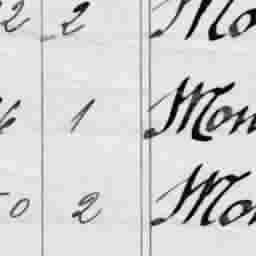 22 2 Mo
6 1 Mon
50 2 Mon